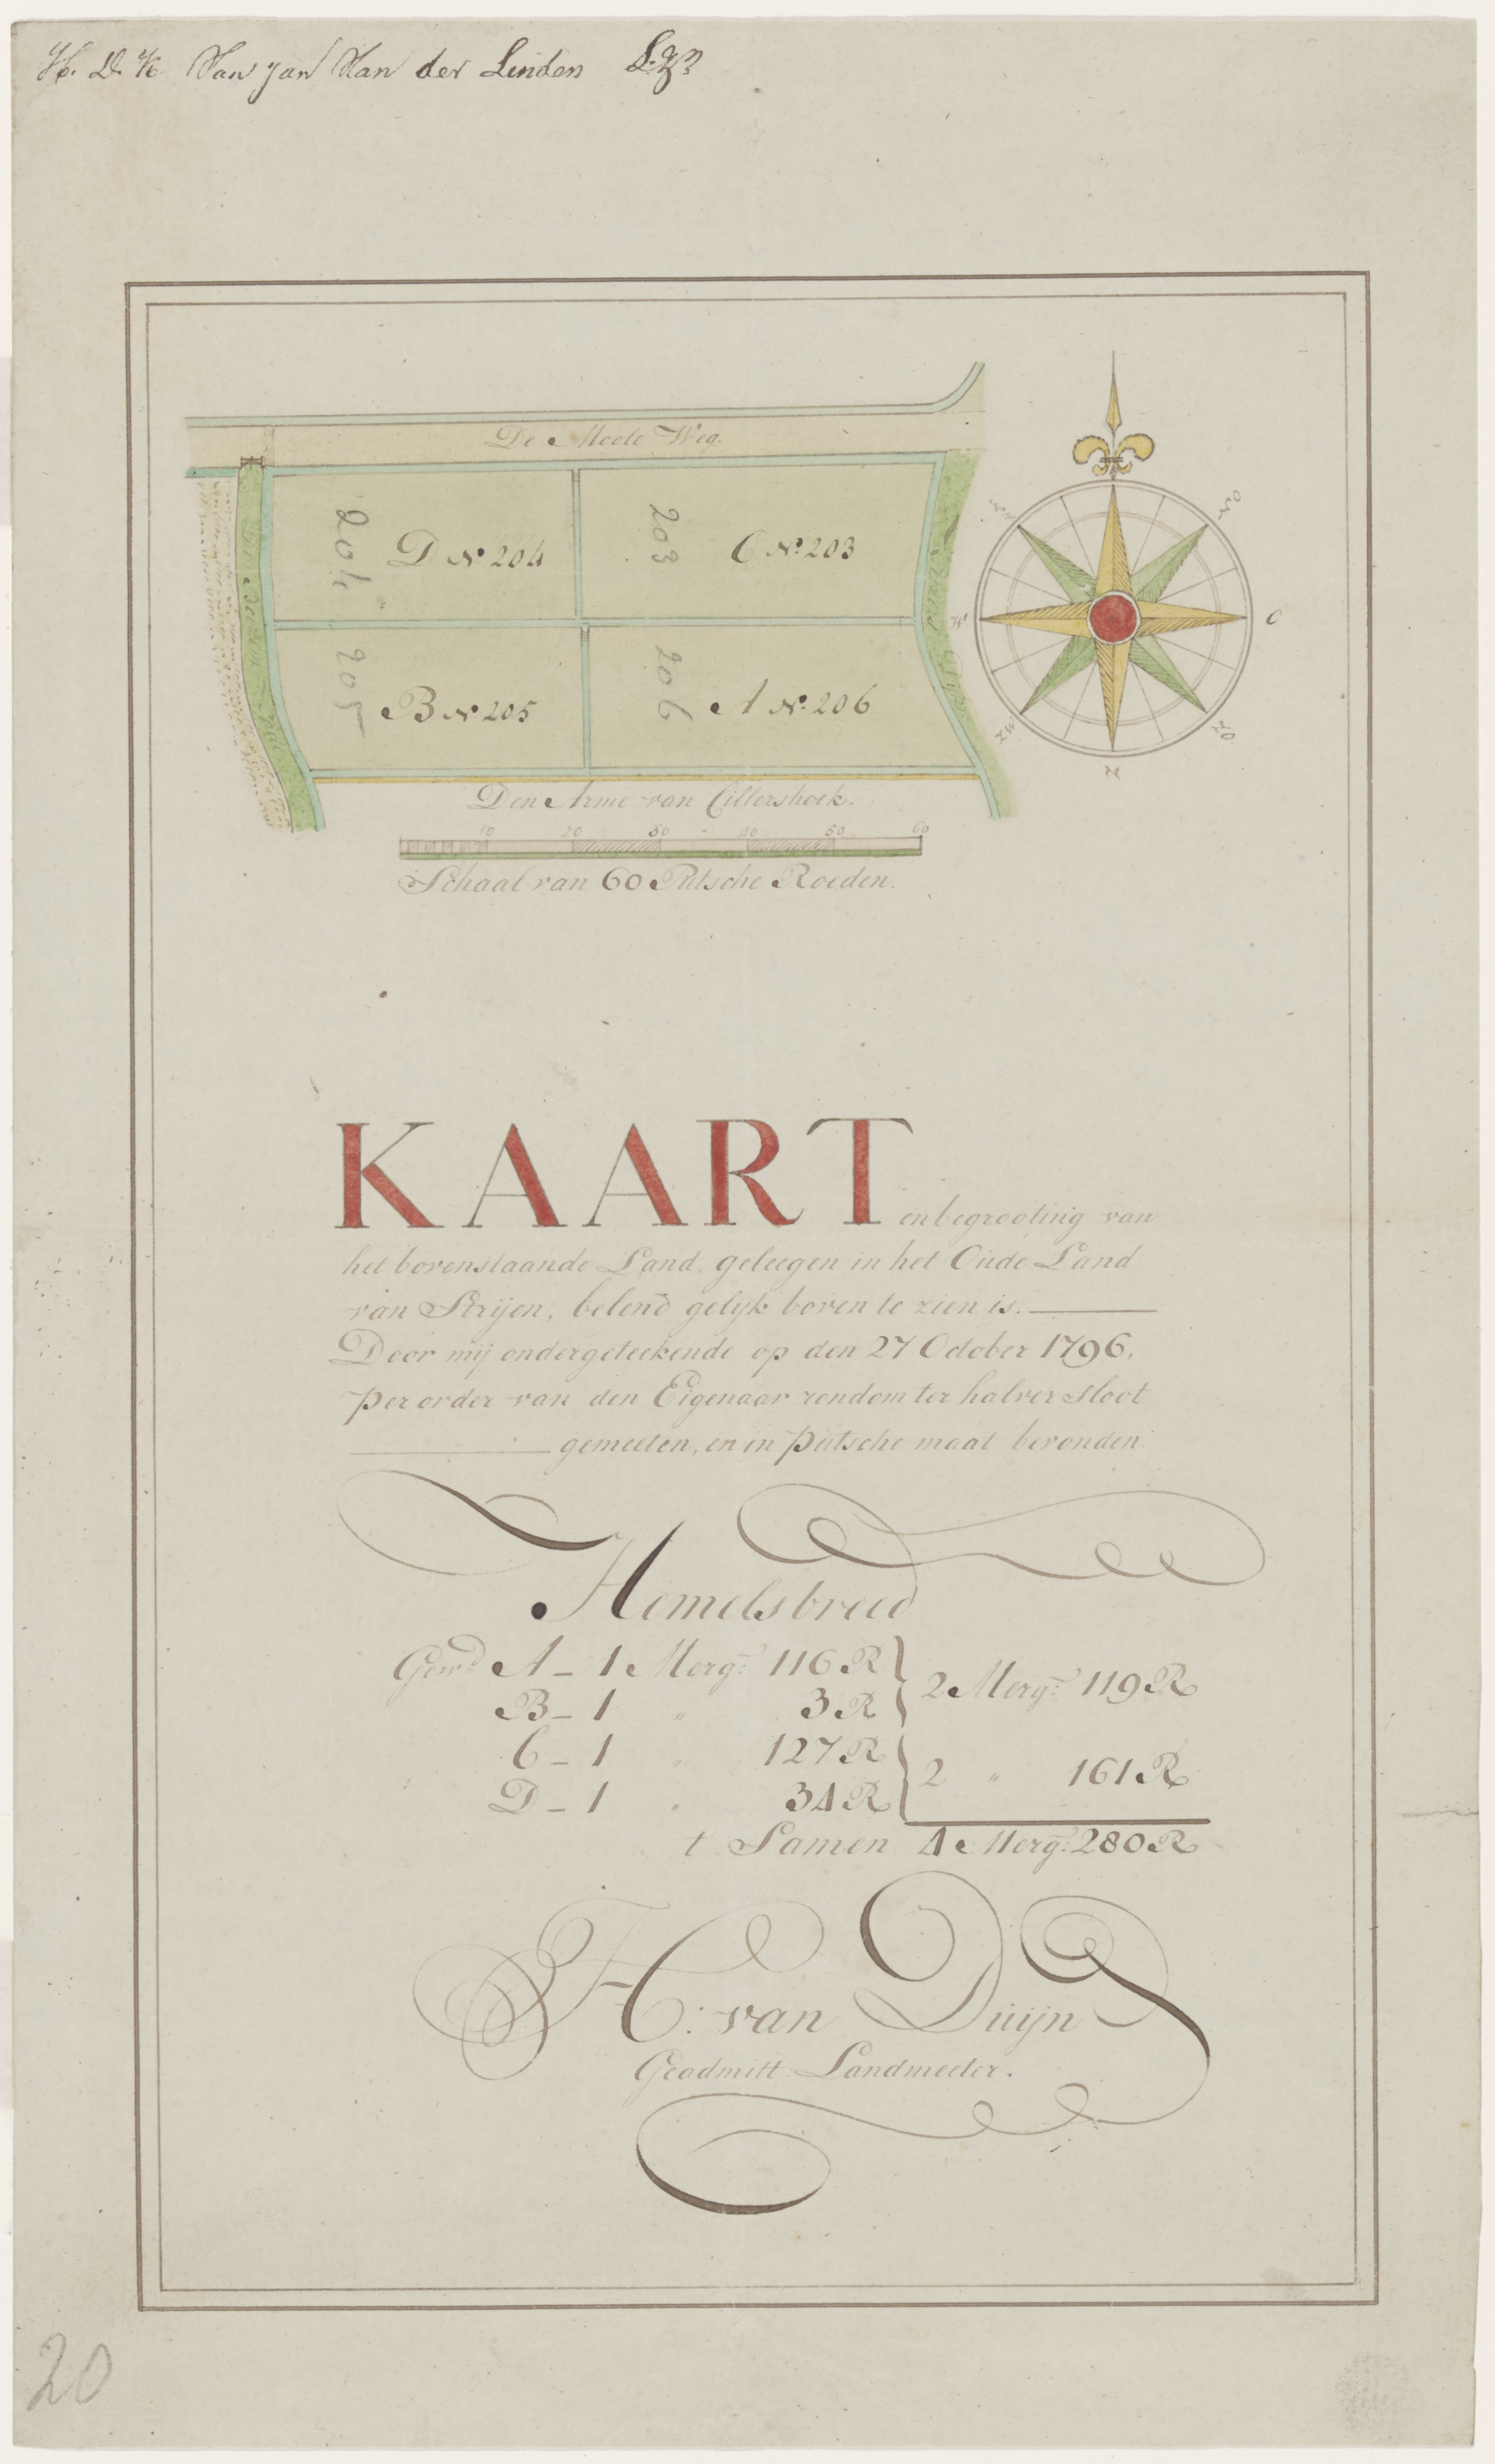 H. D. K. Van Jan Van der Linden L:Zn
De Meele Weg.
204
D No 204
203
C No. 203
205
B No 205
206
A No. 206
W
O
Z
ZW
ZO
Den Arme van Cillershoek.
10 20 30 40 50 60
Schaal van 60 Putsche Roeden.
KAART en begrooting van
het bovenstaande Land, geleegen in het Oude Land
van Strijen, belend gelijk boven te zien is.
Door mij ondergeteekende op den 27 October 1796.
per order van den Eigenaar rondom ter halver sloot
gemeeten, en in putsche maat bevonden
Hemelsbreed
Gew: A - 1 Merg: 116 R } 2 Merg: 119 R
B - 1 " 3 R
C - 1 " 127 R } 2 " 161 R
D - 1 " 34 R
t Samen 4 Merg: 280 R
H: van Duijn
Geadmitt: Landmeeter.
20